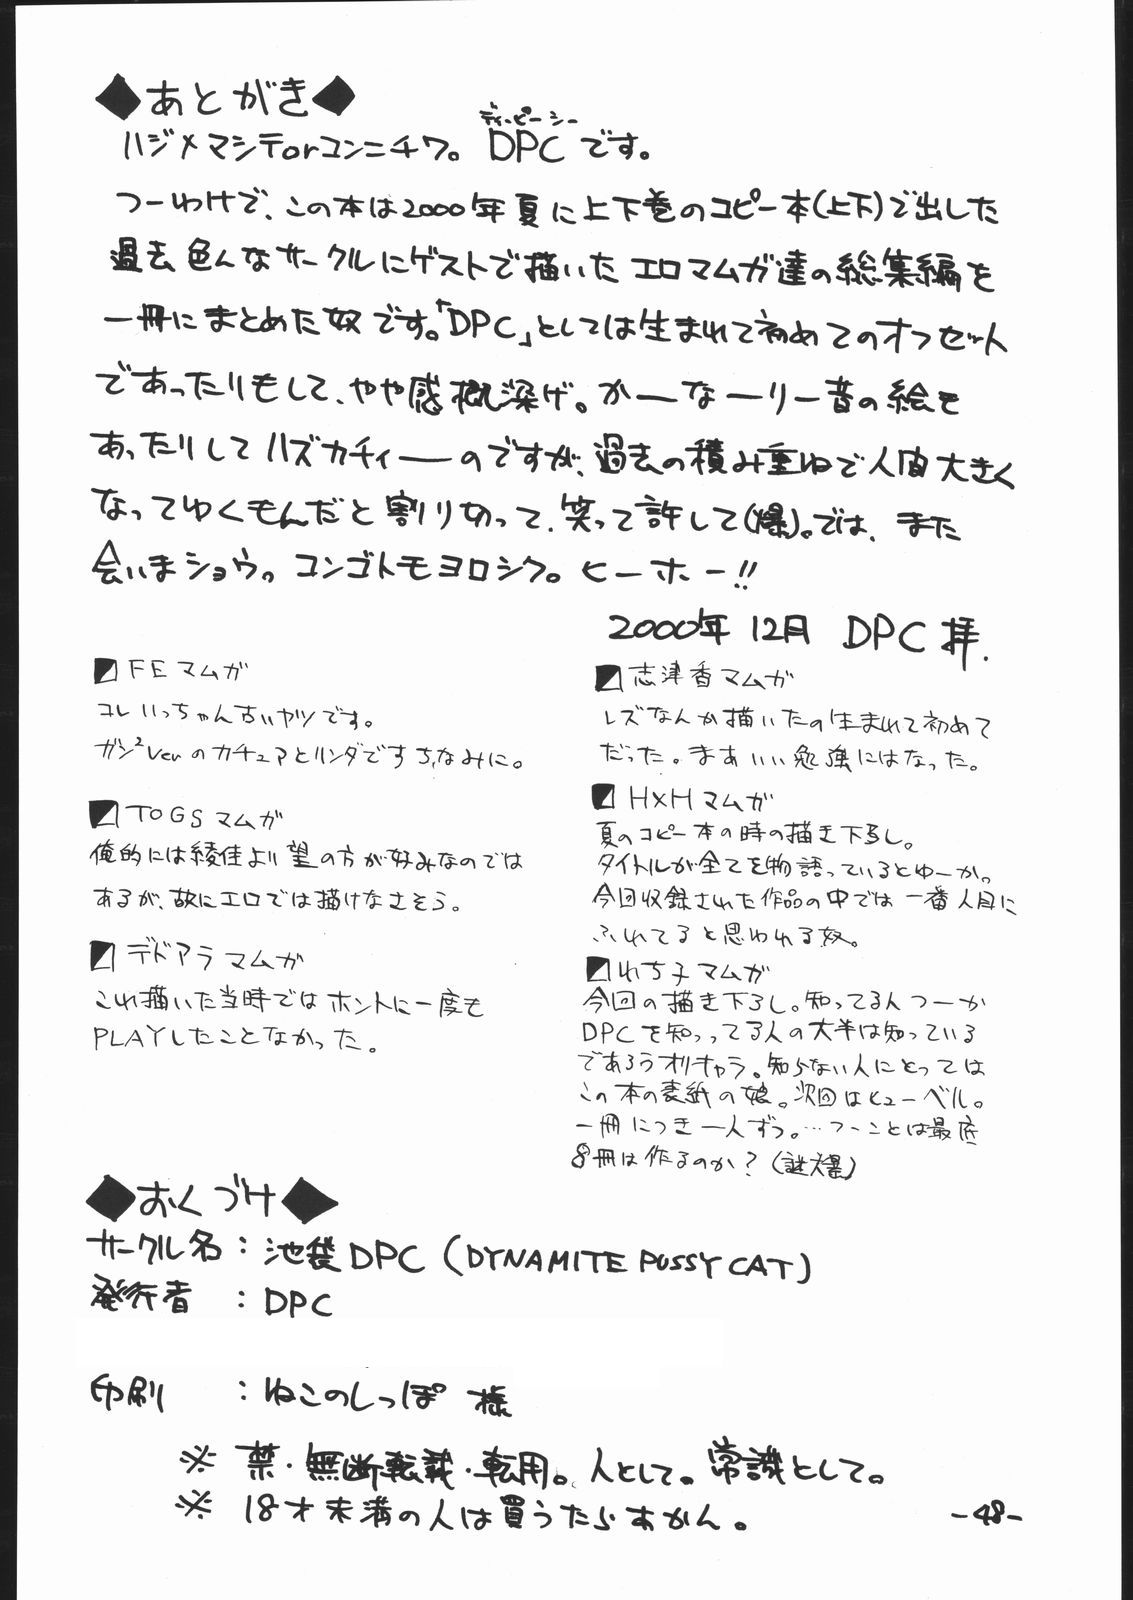 ◆あとがき◆
ディーピーシー
ハジメマシテorコンニチワ。DPCです。
つーわけで、この本は2000年夏に上下巻のコピー本(上下)で出した
過去、色んなサークルにゲストで描いたエロマムガ達の総集編を
一冊にまとめた奴です。「DPC」としては生まれて初めてのオフセット
であったりもして、やや感概深げ。かーなーリー昔の絵も
あったりしてハズカチィーのですが、過去の積み重ねで人間大きく
なってゆくもんだと割り切って、笑って許して(爆)。では、また
会いまショウっ。コンゴトモヨロシク。ヒーホー!!
2000年12月 DPC拝.
◪FEマムガ
コレいっちゃん古いヤツです。
ガシ²Ver のカチュアとリンダです ちなみに。
◪TOGSマムガ
俺的には綾佳より望の方が好みなのでは
あるが、故にエロでは描けなさそう。
◪デドアラマムガ
これ描いた当時ではホントに一度も
PLAYしたことなかった。
◪志津香マムガ
レズなんか描いたの生まれて初めて
だった。まあいい勉強にはなった。
◪H×Hマムガ
夏のコピー本の時の描き下ろし。
タイトルが全てを物語っているとゆーか。
今回収録された作品の中では一番人目に
ふれてると思われる奴。
◪れち子マムガ
今回の描き下ろし。知ってる人つーか
DPCを知ってる人の大半は知っている
であろうオリキャラ。知らない人にとっては
この本の表紙の娘。次回はヒューベル。
一冊につき一人ずつ。…つーことは最底
8冊は作るのか?(謎爆)
◆おくづけ◆
サークル名：池袋DPC(DYNAMITE PUSSY CAT)
発行者：DPC
印刷：ねこのしっぽ 様
※ 禁・無断転載・転用。人として。常識として。
※ 18才未満の人は買うたらあかん。
-48-